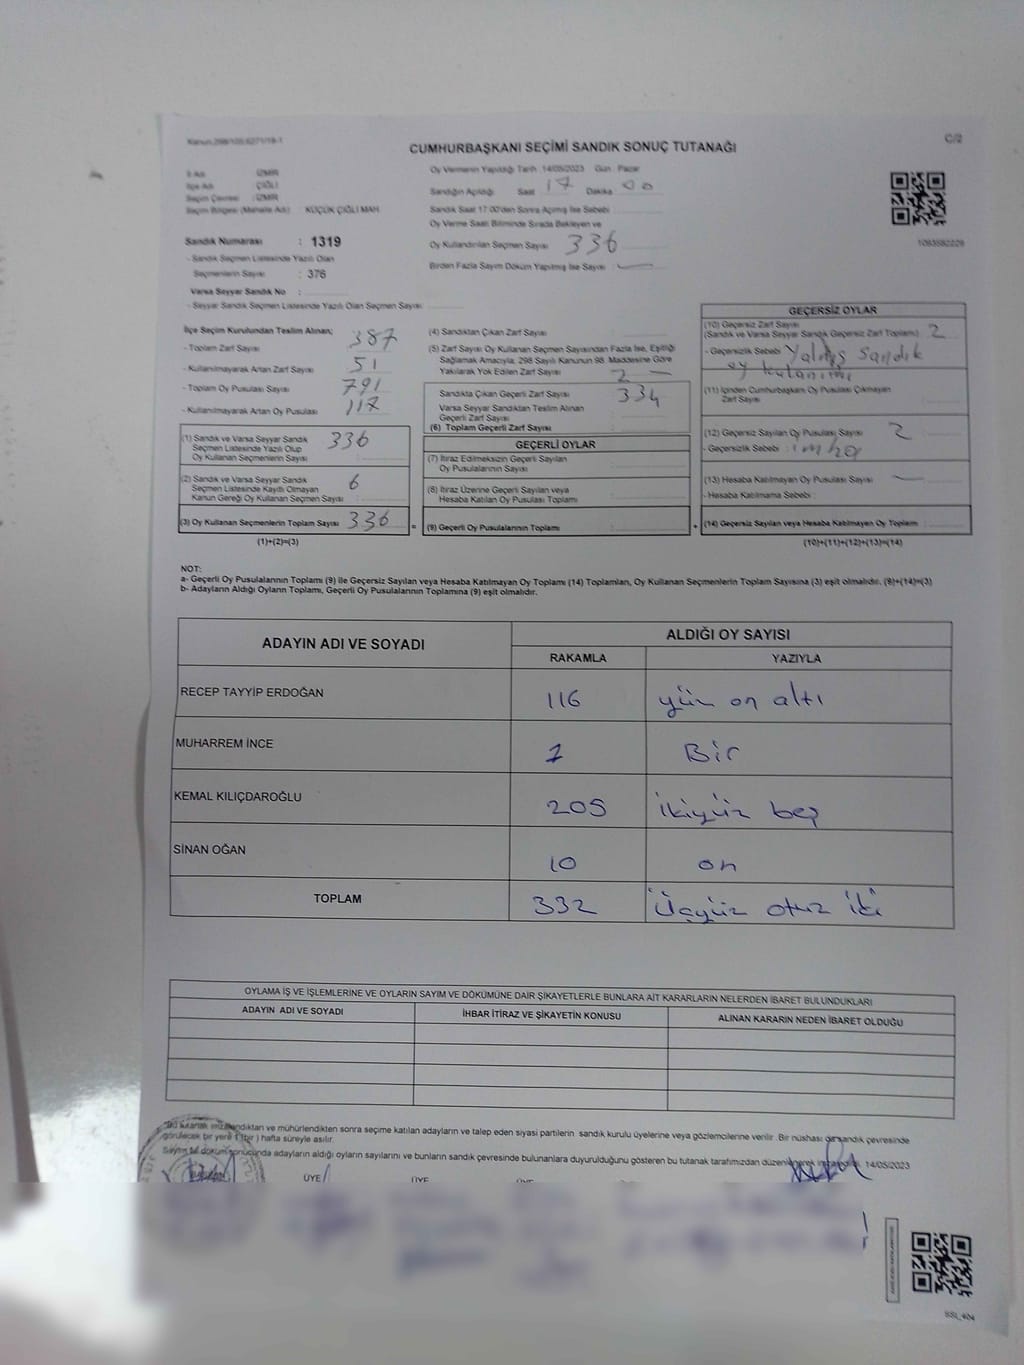 Kanun:298/105,6271/19-1
C/2
CUMHURBAŞKANI SEÇİMİ SANDIK SONUÇ TUTANAĞI
İl Adı : İZMİR
İlçe Adı : ÇİĞLİ
Seçim Çevresi : İZMİR
Seçim Bölgesi (Mahalle Adı) : KÜÇÜK ÇİĞLİ MAH.
Sandık Numarası : 1319
- Sandık Seçmen Listesinde Yazılı Olan
Seçmenlerin Sayısı : 376
Varsa Seyyar Sandık No :
- Seyyar Sandık Seçmen Listesinde Yazılı Olan Seçmen Sayısı :
Oy Vermenin Yapıldığı Tarih :14/05/2023 Gün : Pazar
Sandığın Açıldığı Saat 17 Dakika 00
Sandık Saat 17:00'den Sonra Açılmış İse Sebebi :
Oy Verme Saati Bitiminde Sırada Bekleyen ve
Oy Kullandırılan Seçmen Sayısı : 336
Birden Fazla Sayım Döküm Yapılmış İse Sayısı : —
1093582229
İlçe Seçim Kurulundan Teslim Alınan;
- Toplam Zarf Sayısı : 387
- Kullanılmayarak Artan Zarf Sayısı : 51
- Toplam Oy Pusulası Sayısı : 791
- Kullanılmayarak Artan Oy Pusulası : 117
(1) Sandık ve Varsa Seyyar Sandık
Seçmen Listesinde Yazılı Olup
Oy Kullanan Seçmenlerin Sayısı : 336
(2) Sandık ve Varsa Seyyar Sandık
Seçmen Listesinde Kayıtlı Olmayan
Kanun Gereği Oy Kullanan Seçmen Sayısı : 6
(3) Oy Kullanan Seçmenlerin Toplam Sayısı : 336
(1)+(2)=(3)
(4) Sandıktan Çıkan Zarf Sayısı :
(5) Zarf Sayısı Oy Kullanan Seçmen Sayısından Fazla İse, Eşitliği
Sağlamak Amacıyla, 298 Sayılı Kanunun 98. Maddesine Göre
Yakılarak Yok Edilen Zarf Sayısı : 2 —
Sandıkta Çıkan Geçerli Zarf Sayısı : 334
Varsa Seyyar Sandıktan Teslim Alınan
Geçerli Zarf Sayısı :
(6) Toplam Geçerli Zarf Sayısı :
GEÇERLİ OYLAR
(7) İtiraz Edilmeksizin Geçerli Sayılan
Oy Pusulalarının Sayısı :
(8) İtiraz Üzerine Geçerli Sayılan veya
Hesaba Katılan Oy Pusulası Toplamı :
= (9) Geçerli Oy Pusulalarının Toplamı :
GEÇERSİZ OYLAR
(10) Geçersiz Zarf Sayısı
(Sandık ve Varsa Seyyar Sandık Geçersiz Zarf Toplamı) : 2
- Geçersizlik Sebebi : Yalnış sandık
oy kulanımı
(11) İçinden Cumhurbaşkanı Oy Pusulası Çıkmayan
Zarf Sayısı :
(12) Geçersiz Sayılan Oy Pusulası Sayısı : 2
- Geçersizlik Sebebi : imha
(13) Hesaba Katılmayan Oy Pusulası Sayısı : —
- Hesaba Katılmama Sebebi :
+ (14) Geçersiz Sayılan veya Hesaba Katılmayan Oy Toplamı :
(10)+(11)+(12)+(13)=(14)
NOT:
a- Geçerli Oy Pusulalarının Toplamı (9) ile Geçersiz Sayılan veya Hesaba Katılmayan Oy Toplamı (14) Toplamları, Oy Kullanan Seçmenlerin Toplam Sayısına (3) eşit olmalıdır. (9)+(14)=(3)
b- Adayların Aldığı Oyların Toplamı, Geçerli Oy Pusulalarının Toplamına (9) eşit olmalıdır.
ADAYIN ADI VE SOYADI ALDIĞI OY SAYISI
RAKAMLA YAZIYLA
RECEP TAYYİP ERDOĞAN 116 yüz on altı
MUHARREM İNCE 1 Bir
KEMAL KILIÇDAROĞLU 205 ikiyüz beş
SİNAN OĞAN 10 on
TOPLAM 332 üçyüz otuz iki
OYLAMA İŞ VE İŞLEMLERİNE VE OYLARIN SAYIM VE DÖKÜMÜNE DAİR ŞİKAYETLERLE BUNLARA AİT KARARLARIN NELERDEN İBARET BULUNDUKLARI
ADAYIN ADI VE SOYADI İHBAR İTİRAZ VE ŞİKAYETİN KONUSU ALINAN KARARIN NEDEN İBARET OLDUĞU
Bu tutanak imzalandıktan ve mühürlendikten sonra seçime katılan adayların ve talep eden siyasi partilerin sandık kurulu üyelerine veya gözlemcilerine verilir. Bir nüshası da sandık çevresinde
görülecek bir yere 1 (bir) hafta süreyle asılır.
Sayım ve döküm sonucunda adayların aldığı oyların sayılarını ve bunların sandık çevresinde bulunanlara duyurulduğunu gösteren bu tutanak tarafımızdan düzenlenerek imzalandı. 14/05/2023
ÜYE ÜYE ÜYE
SSİ_404